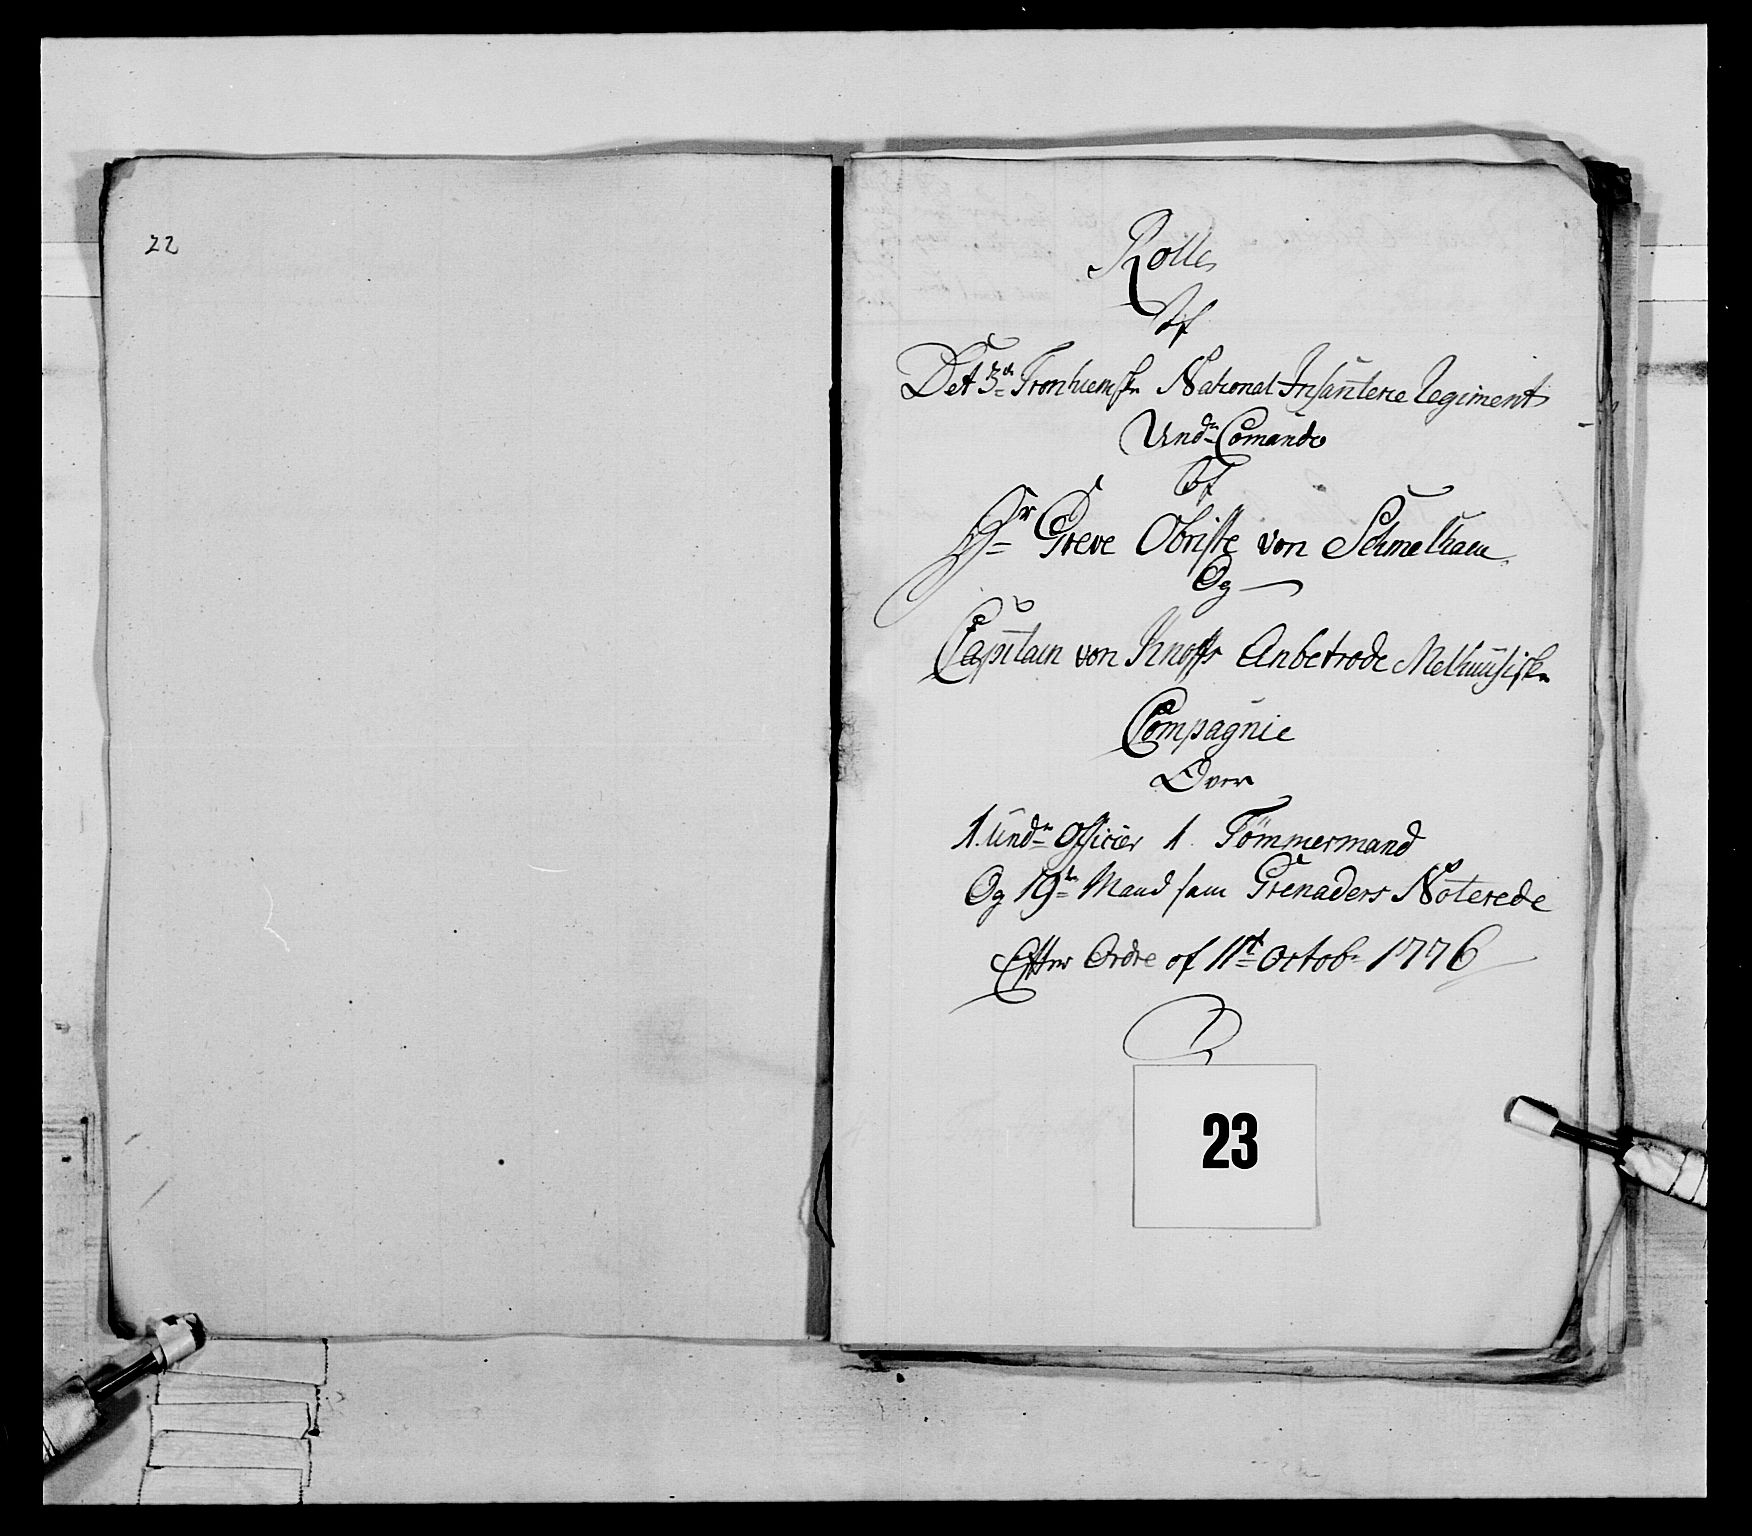 22
Rolle
Af
Det 3de Tronhiemske National Infanterie Regiment
Under Comando
Af
Hr Greve Obriste von Schmettau
Og
Capitain von Knoffs Anbetrode Melhuusiske
Compagnie
Over
1. Under Officier 1. Tömmermand
Og 19ten Mand som Grenaders Noterede
Efter Ordre af 11te Octobr 1776
23